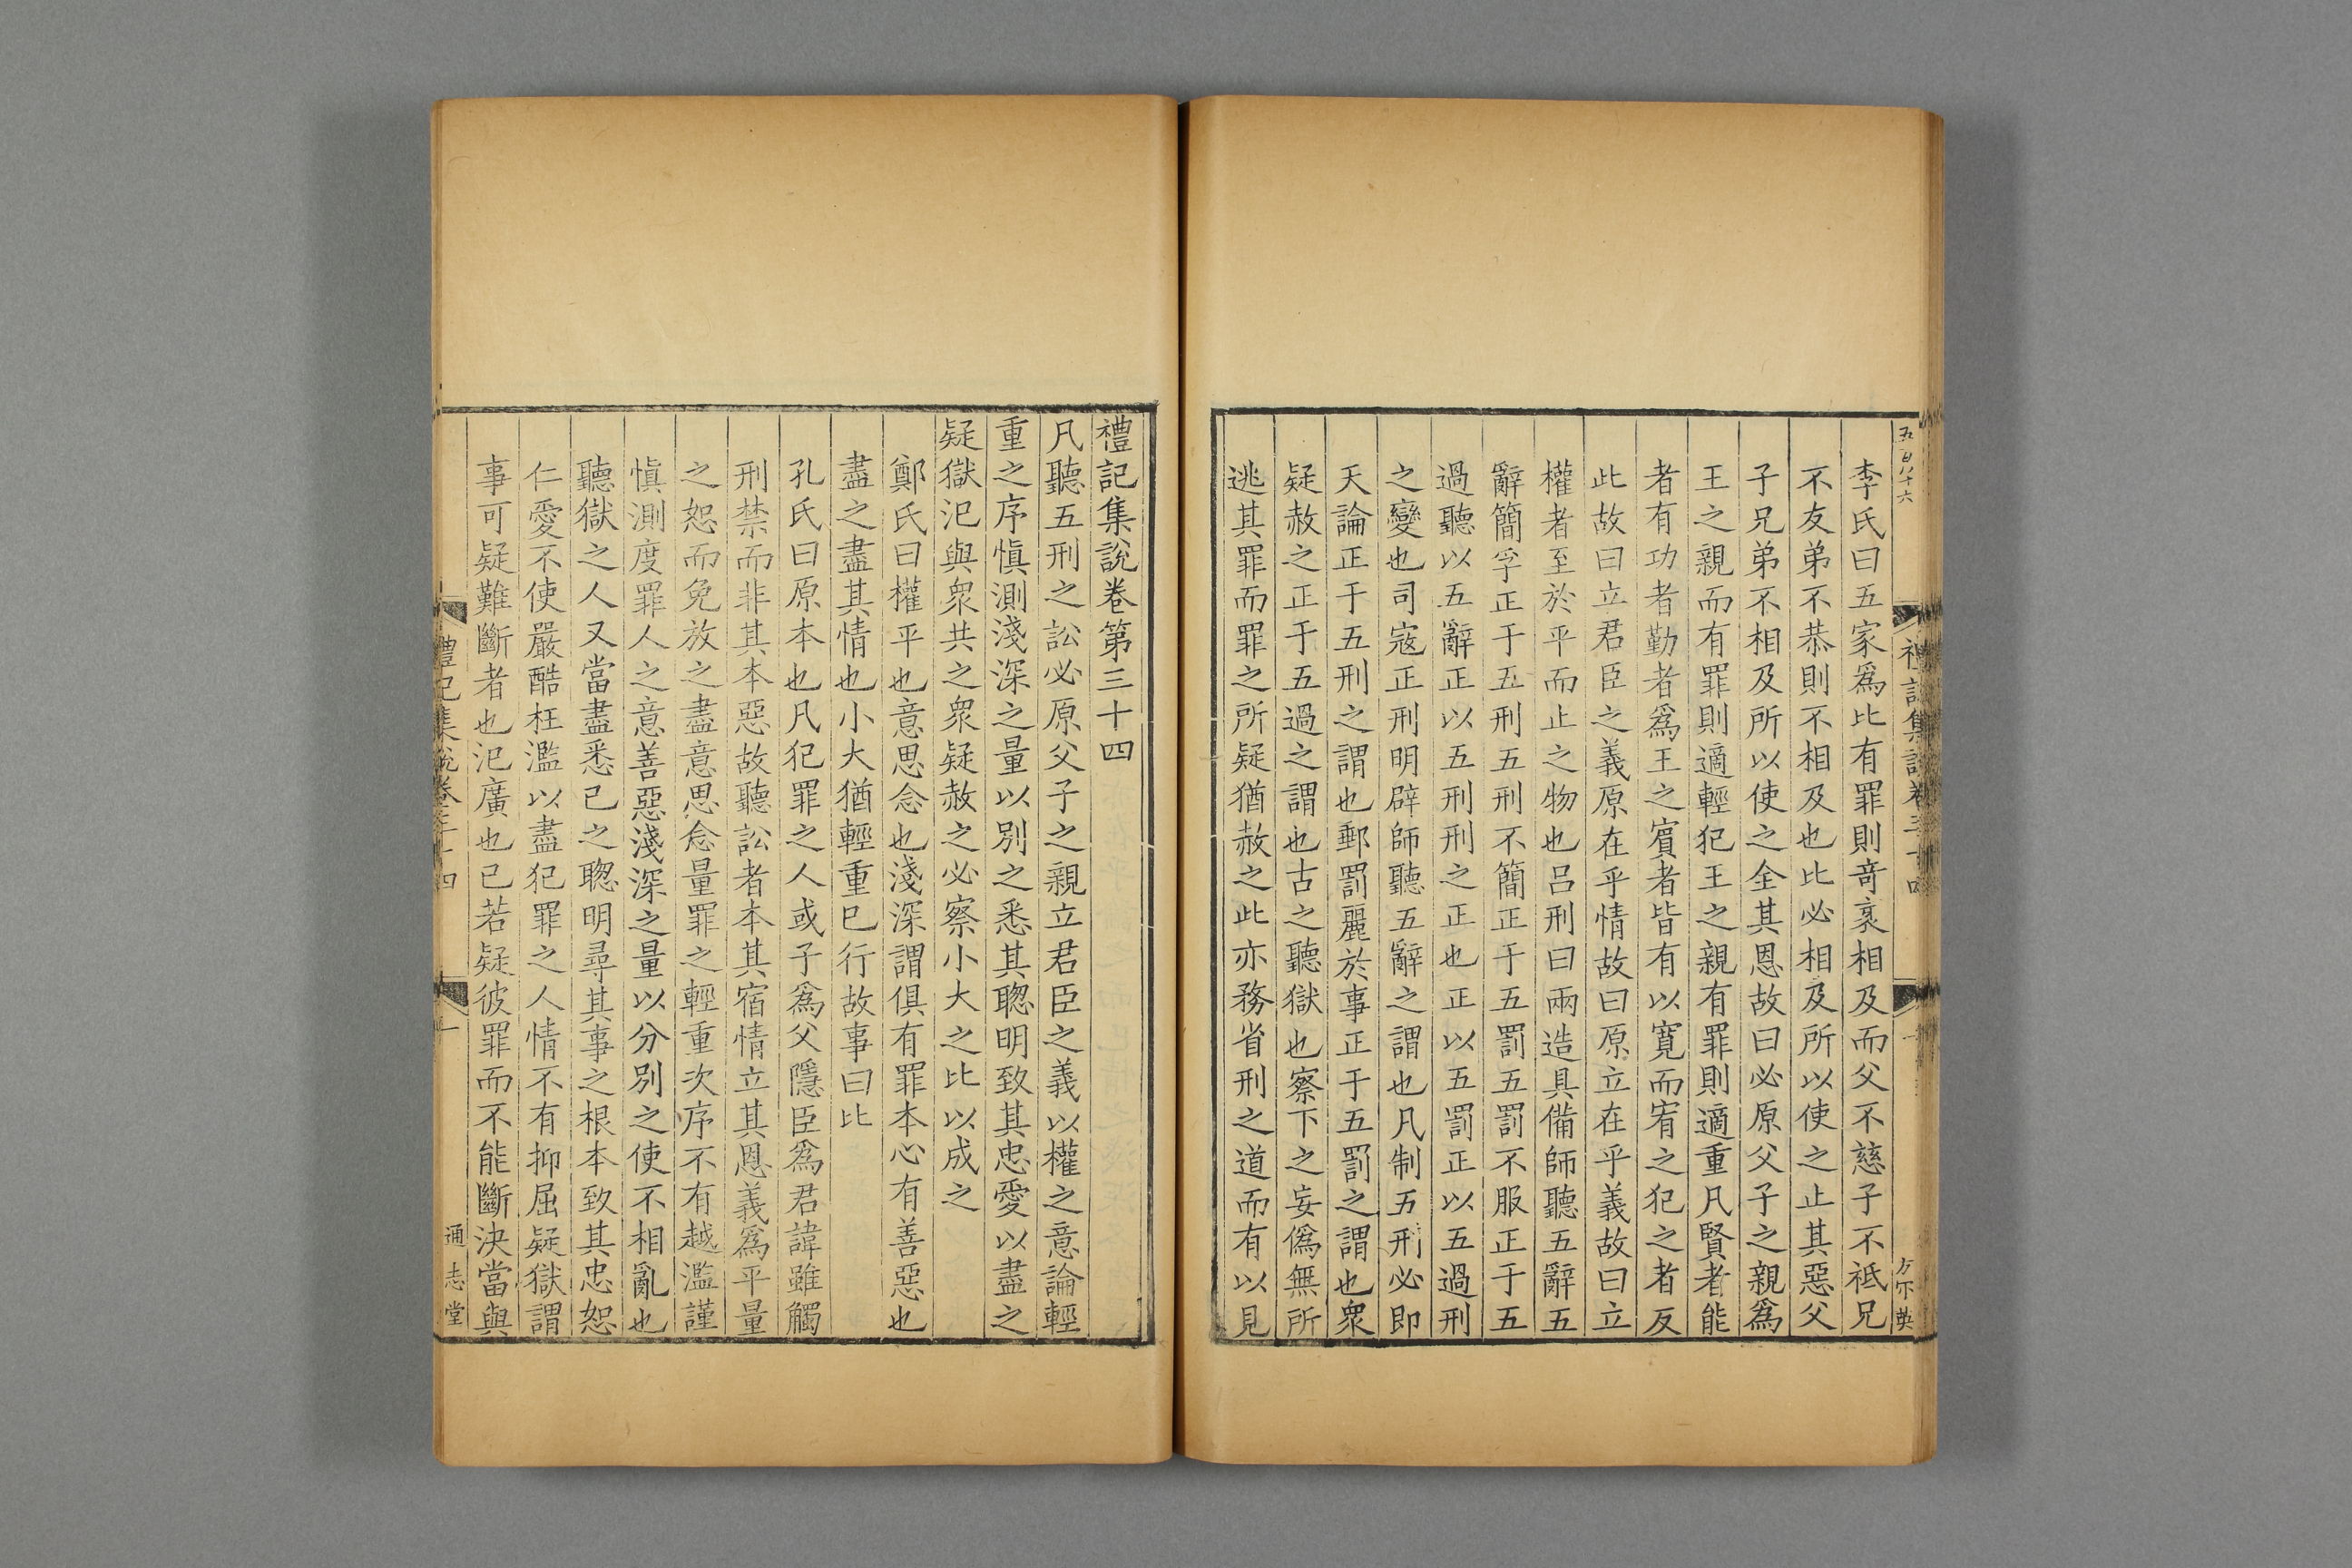 五百八十六
禮記集說卷三十四
一
李氏曰五家爲比有罪則竒衺相及而父不慈子不祗兄
不友弟不恭則不相及也比必相及所以使之止其惡父
子兄弟不相及所以使之全其恩故曰必原父子之親爲
王之親而有罪則適輕犯王之親有罪則適重凡賢者能
者有功者勤者爲王之賔者皆有以寛而宥之犯之者反
此故曰立君臣之義原在乎情故曰原立在乎義故曰立
權者至於平而止之物也呂刑曰兩造具備師聽五辭五
辭簡孚正于五刑五刑不簡正于五罰五罰不服正于五
過聽以五辭正以五刑刑之正也正以五罰正以五過刑
之變也司寇正刑明辟師聽五辭之謂也凡制五刑必即
天論正于五刑之謂也郵罰麗於事正于五罰之謂也衆
疑赦之正于五過之謂也古之聽獄也察下之妄僞無所
逃其罪而罪之所疑猶赦之此亦務省刑之道而有以見
禮記集說卷第三十四
凡聽五刑之訟必原父子之親立君臣之義以權之意論輕
重之序愼測淺深之量以别之悉其聦明致其忠愛以盡之
疑獄氾與衆共之衆疑赦之必察小大之比以成之
鄭氏曰權平也意思念也淺深謂俱有罪本心有善惡也
盡之盡其情也小大猶輕重已行故事曰比
孔氏曰原本也凡犯罪之人或子爲父隱臣爲君諱雖觸
刑禁而非其本惡故聽訟者本其宿情立其恩義爲平量
之恕而免放之盡意思念量罪之輕重次序不有越濫謹
愼測度罪人之意善惡淺深之量以分别之使不相亂也
聽獄之人又當盡悉已之聦明尋其事之根本致其忠恕
仁愛不使嚴酷枉濫以盡犯罪之人情不有抑屈疑獄謂
事可疑難斷者也氾廣也已若疑彼罪而不能斷決當與
禮記集說卷三十四
一
通志堂